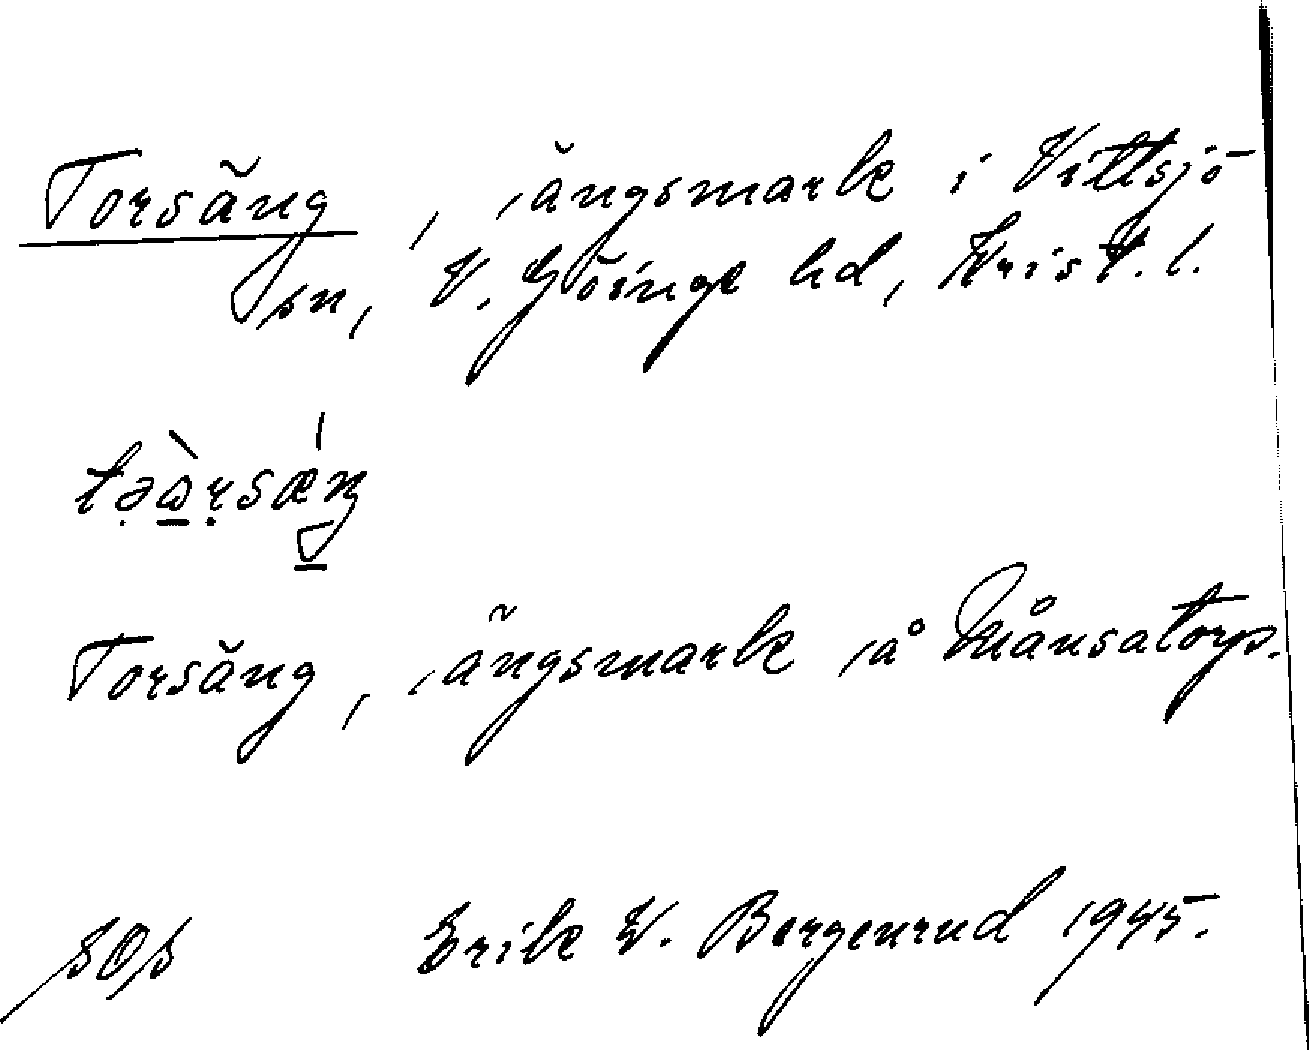 Torsäng, ängsmark i Vittsjö
sn, V. Göinge hd, Krist. l.
Torsäng, ängsmark å Månsatorp.
Erik W. Bergenrud 1945.